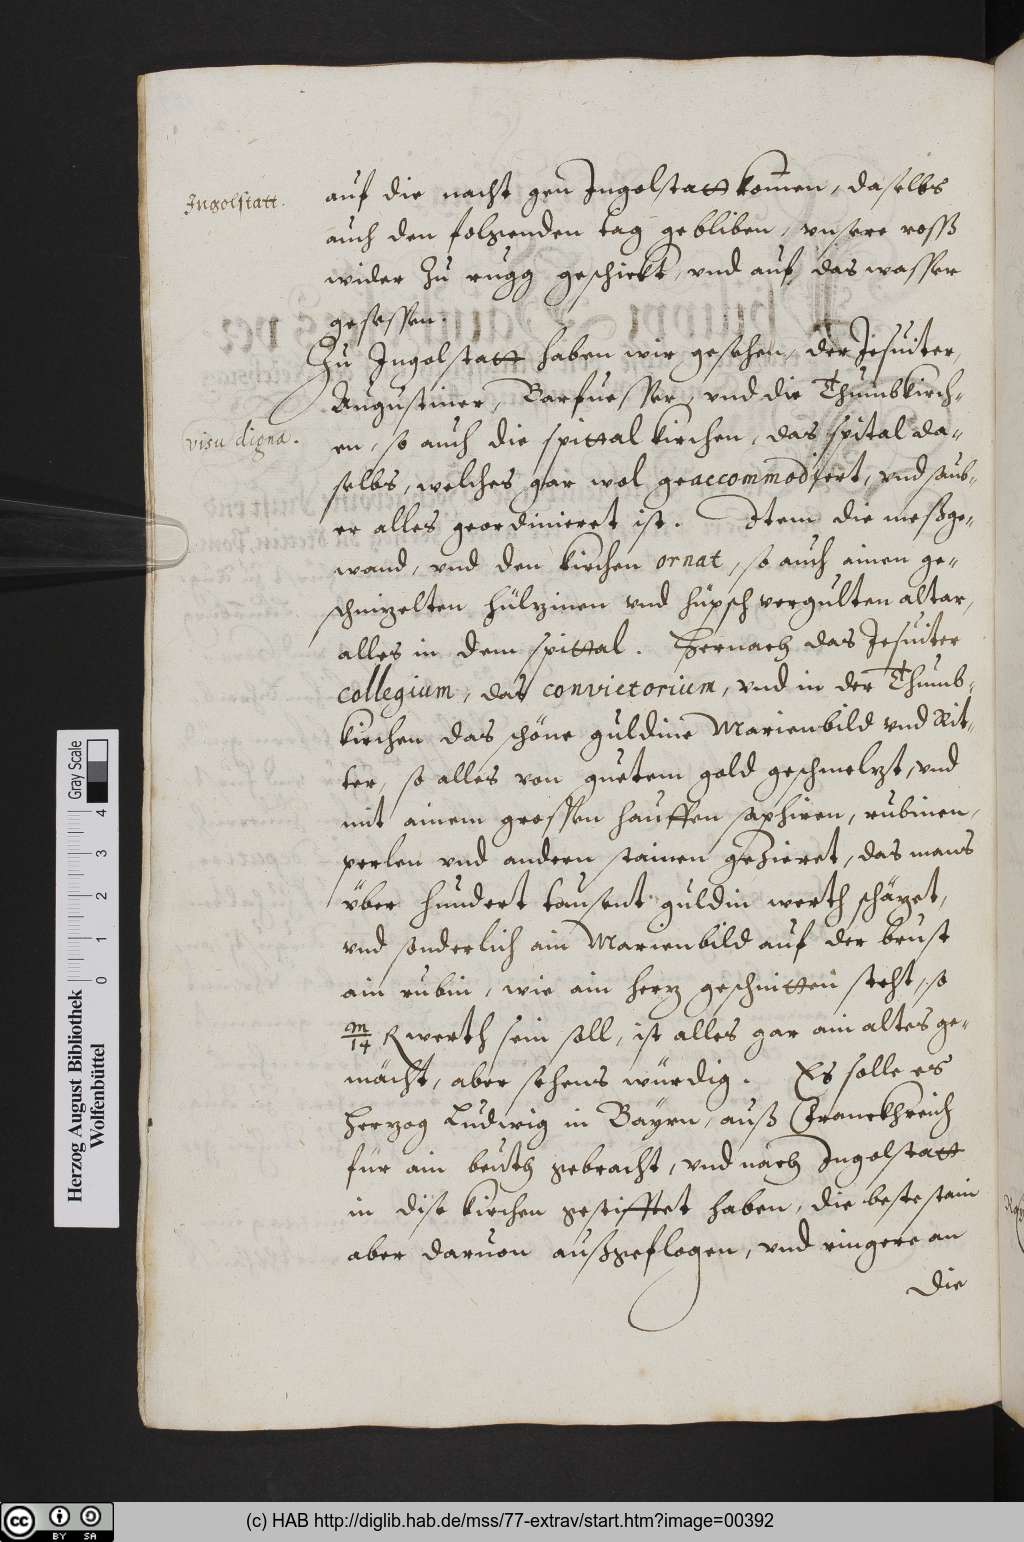 Ingolstatt.
auf die nacht gen Ingolstatt kom̄en, daselbs
auch den folgenden tag gebliben, vnsere rosß
wider zu rugg geschickt, vnd auf das wasser
gesessen.
Zu Ingolstatt haben wir gesehen, der Jesuiter,
Augustiner, Barfuesser, vnd die Thumbkirch-
visu digna.
en, so auch die spittal kirchen, das spital da-
selbs, welches gar wol geaccommodiert, vnd saub-
er alles geordinieret ist. Item die meßge-
wand, vnd den kirchen ornat, so auch ainen ge-
schnizelten hülzinen vnd hüpsch vergulten altar,
alles in dem spittal. Hernach das Jesuiter
collegium, das convictorium, vnd in der Thumb-
kirchen das schöne guldine Marienbild vnd Rit-
ter, so alles von guetem gold geschmelzt, vnd
mit ainem grossen hauffen saphiren, rubinen,
perlen vnd andern stainen gezieret, das mans
über hundert tausent guldin werth schäzet,
vnd sonderlich ain Marienbild auf der brust
ain rubin, wie ain herz geschnitten steht, so
m/14 werth sein soll, ist alles gar ain altes ge-
mächt, aber sehens würdig. Es solle es
Herzog Ludwig in Bayrn, auß Franckhreich
für ain beuth gebracht, vnd nach Ingolstatt
in dise kirchen gestifftet haben, die beste stain
aber daruon außgeflogen, vnd ringere an
die
Herzog August Bibliothek
Wolfenbüttel
0 1 2 3 4
Gray Scale
cc BY SA
(c) HAB http://diglib.hab.de/mss/77-extrav/start.htm?image=00392